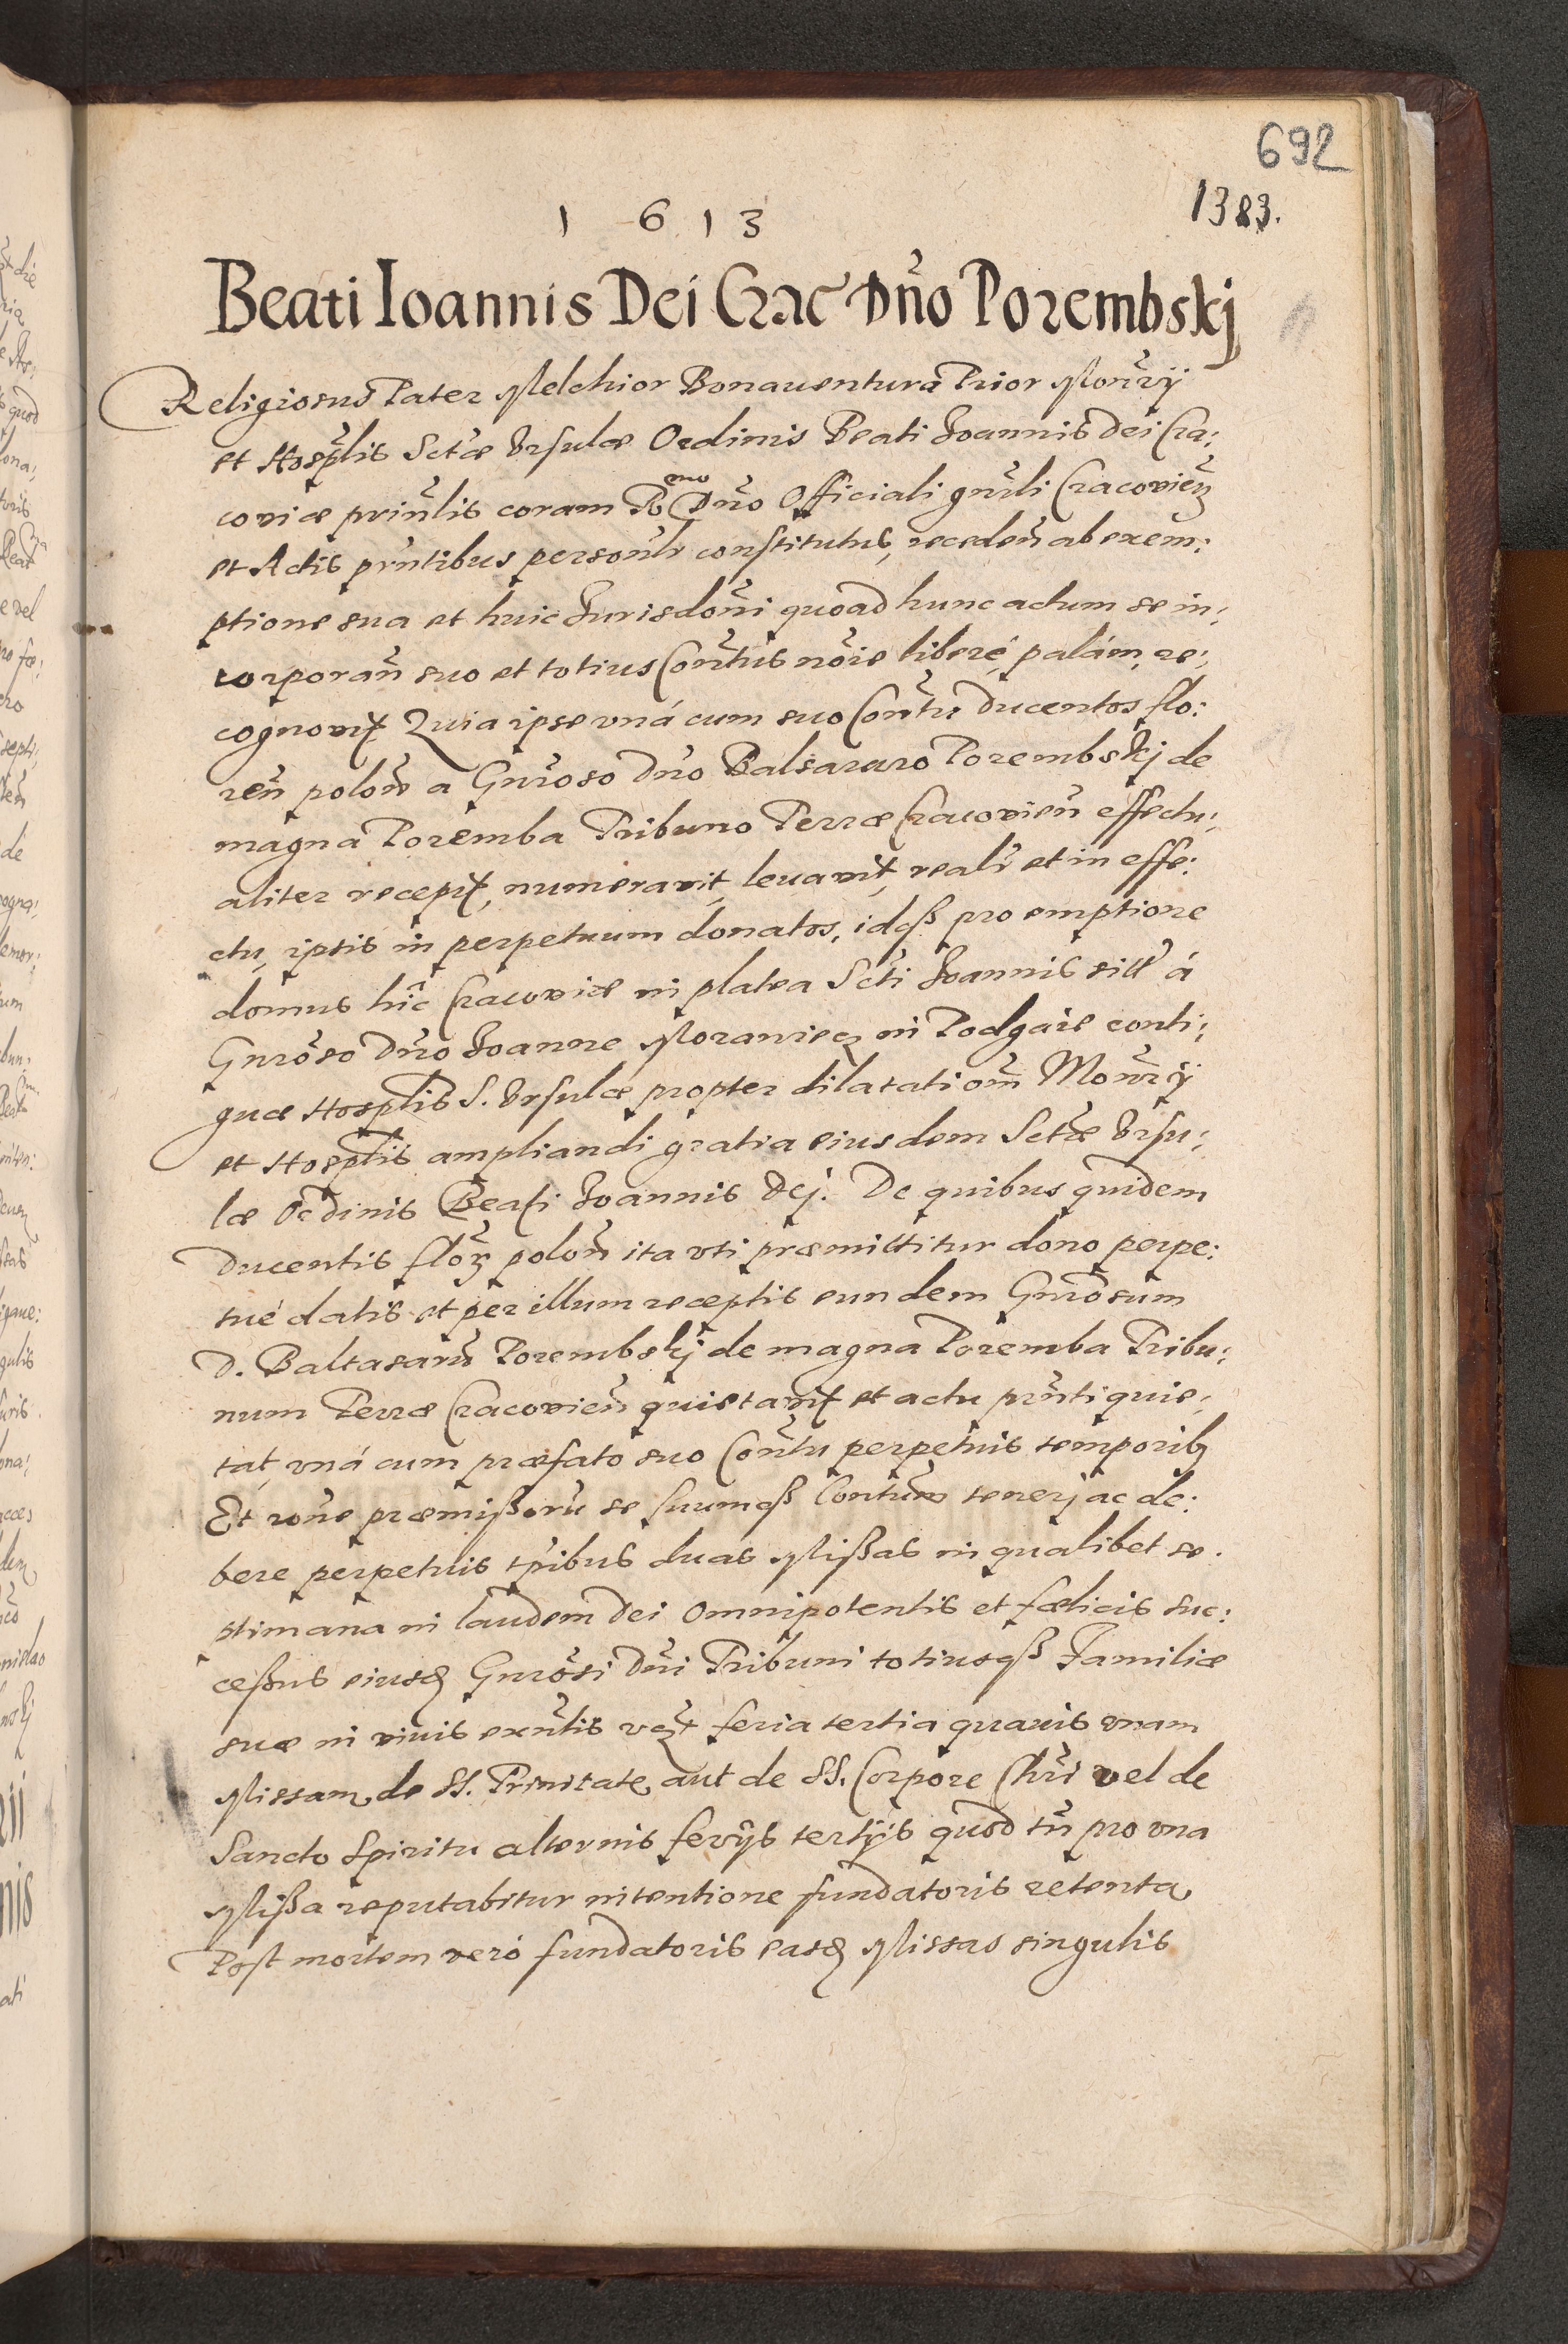 692
1383.
1 6 1 3
Beati Ioannis Dei Crac Dño Porembskj
Religiosus Pater Melchior Bonauentura Prior Monrÿ
et Hosplis Sctæ Vrsulæ Ordinis Beati Joannis Dei Cra:
coviæ prinlis coram R emo Dño Officiali gnrli Cracovien
et Actis prntibus personlr constitutus, receden ab exem:
ptione sua et huic Jurisdoni quoad hunc actum se in:
corporan suo et totius Contus noie liberé, palám, re:
cognovit Quia ipse vná cum suo Contu Ducentos flo:
ren polon a Gnroso Dño Balsararo Porembskj de
magna Poremba Tribuno Terræ Cracovien effectu:
aliter recepit, numeravit, leuavit, realr et in effe:
ctu, ipsis in perpetuum donatos, idqß pro emptione
domus hîc Cracoviæ in platea Scti Joannis sitt á
Gnroso Dño Joanne Morawiec in Podgaie conti:
guæ Hosptlis S. Vrsulæ propter dilatationm Monrÿ
et Hosptlis ampliandi gratia eiusdem Sctæ Vrsu:
læ Ordinis Beati Joannis Dej. De quibus quidem
Ducentis flor polon ita vti præmittitur dono perpe:
tué datis et per illum receptis eundem Gnrosum
D. Baltasarum Porembskj de magna Poremba Tribu:
num Terræ Cracovien quietavit et actu prnti quie:
tat, vná cum præfato suo Contu perpetuis temporib
Et rone præmißoru se suumqß Contum tenerj ac de:
bere perpetuis tpibus duas Mißas in qualibet se.
ptimana in laudem Dei Omnipotentis et fælicis suc:
ceßus eiusd Gnrosi Dñi Tribuni totiusqß Familiæ
suæ in vivis exntis vzt feria tertia quavis vnam
Missam, de SS. Trinitate, aut de SS. Corpore Chri vel de
Sancto Spiritu alternis ferÿs tertÿs quod tñ pro vna
Mißa reputabitur intentione fundatoris retenta,
Post mortem veró fundatoris easd Missas singulis